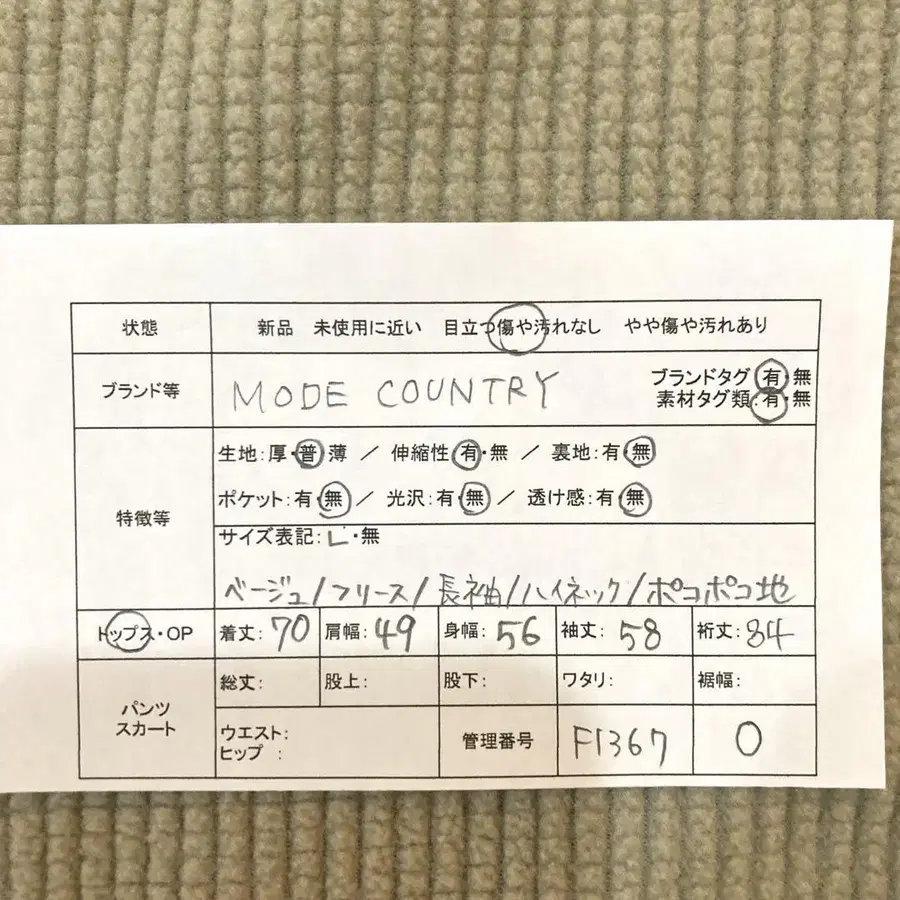 状態 新品 未使用に近い 目立つ傷や汚れなし やや傷や汚れあり
ブランド等 MODE COUNTRY ブランドタグ 有・無
素材タグ類:有・無
特徴等 生地:厚・普・薄 / 伸縮性 有・無 / 裏地:有・無
ポケット:有・無 / 光沢:有・無 / 透け感:有・無
サイズ表記:L・無
ベージュ/フリース/長袖/ハイネック/ポコポコ地
トップス・OP 着丈:70 肩幅:49 身幅:56 袖丈:58 裄丈:84
パンツ スカート 総丈: 股上: 股下: ワタリ: 裾幅:
ウエスト:
ヒップ : 管理番号 F1367 0